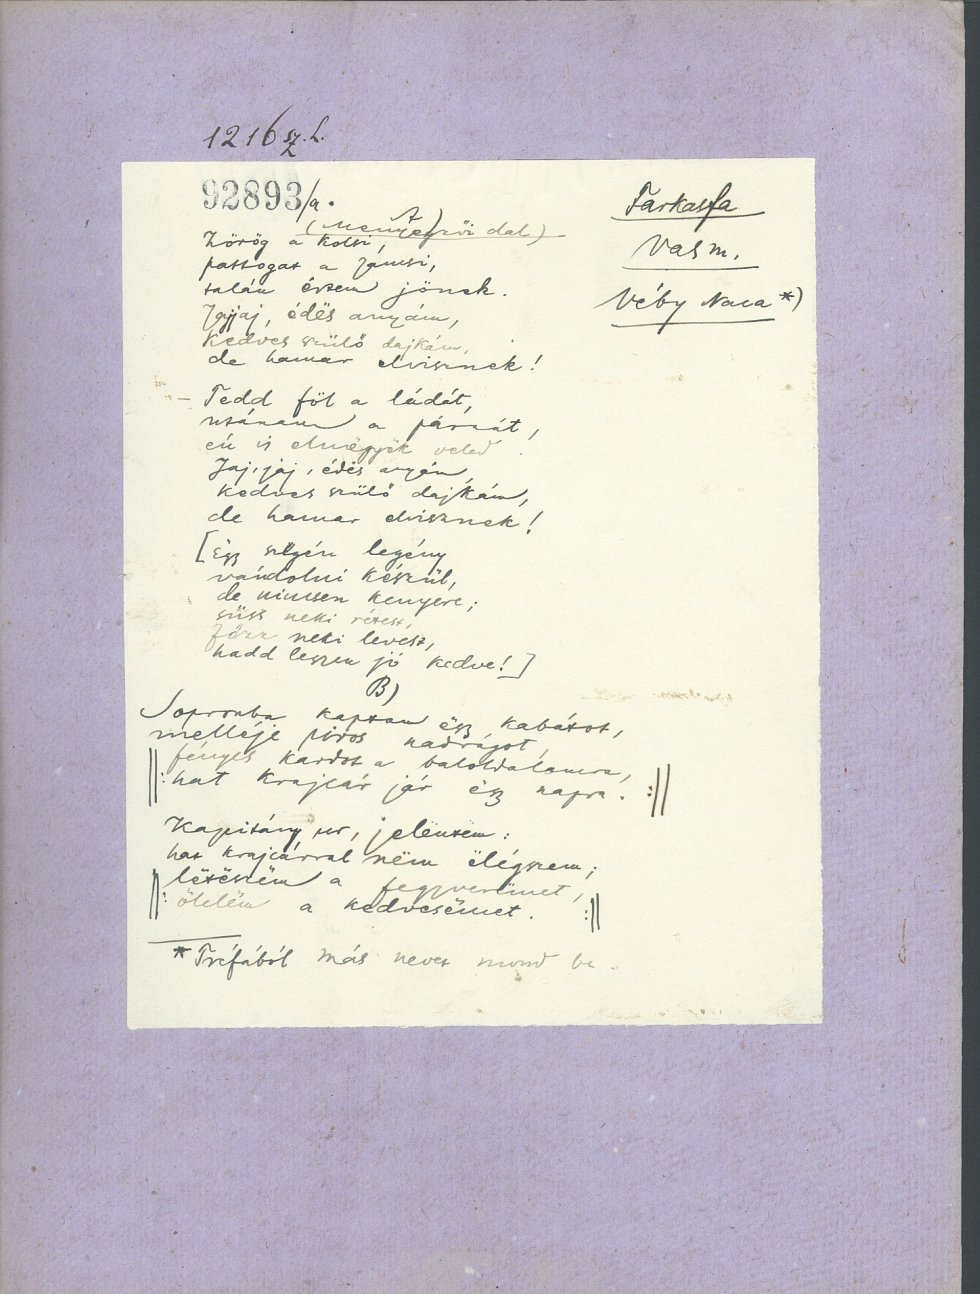 1216 sz. L.
92893/a.
Farkasfa
Vas m.
Véby Naca *)
A)
(Menyegzői dal)
Zörög a kolsi,
pattogat a Jancsi,
talán értem jönek.
Jajjaj, édës anyám,
kedves szülő dajkám,
de hamar elvisznek!
– Tedd föl a ládát,
utánam a párnát,
én is elmëgyëk veled.
Jaj, jaj, édës anyám,
kedves szülő dajkám,
de hamar elvisznek!
[Ëgy szëgén legény
vándolni készül,
de nincsen kenyere;
süss neki rétest,
főzz neki levest,
hadd leszen jó kedve!]
B)
Sopronba kaptam ëgy kabátot,
melléje piros nadrágot,
||: fényes kardot a baloldalomra,
hat krajcár jár ëgy napra. :||
Kapitány ur, jelëntëm:
hat krajcárral nëm ëlégszem;
||: lëtëszëm a fegyverëmet,
ölelëm a kedvesëmet. :||
* Tréfából más nevet mond be.